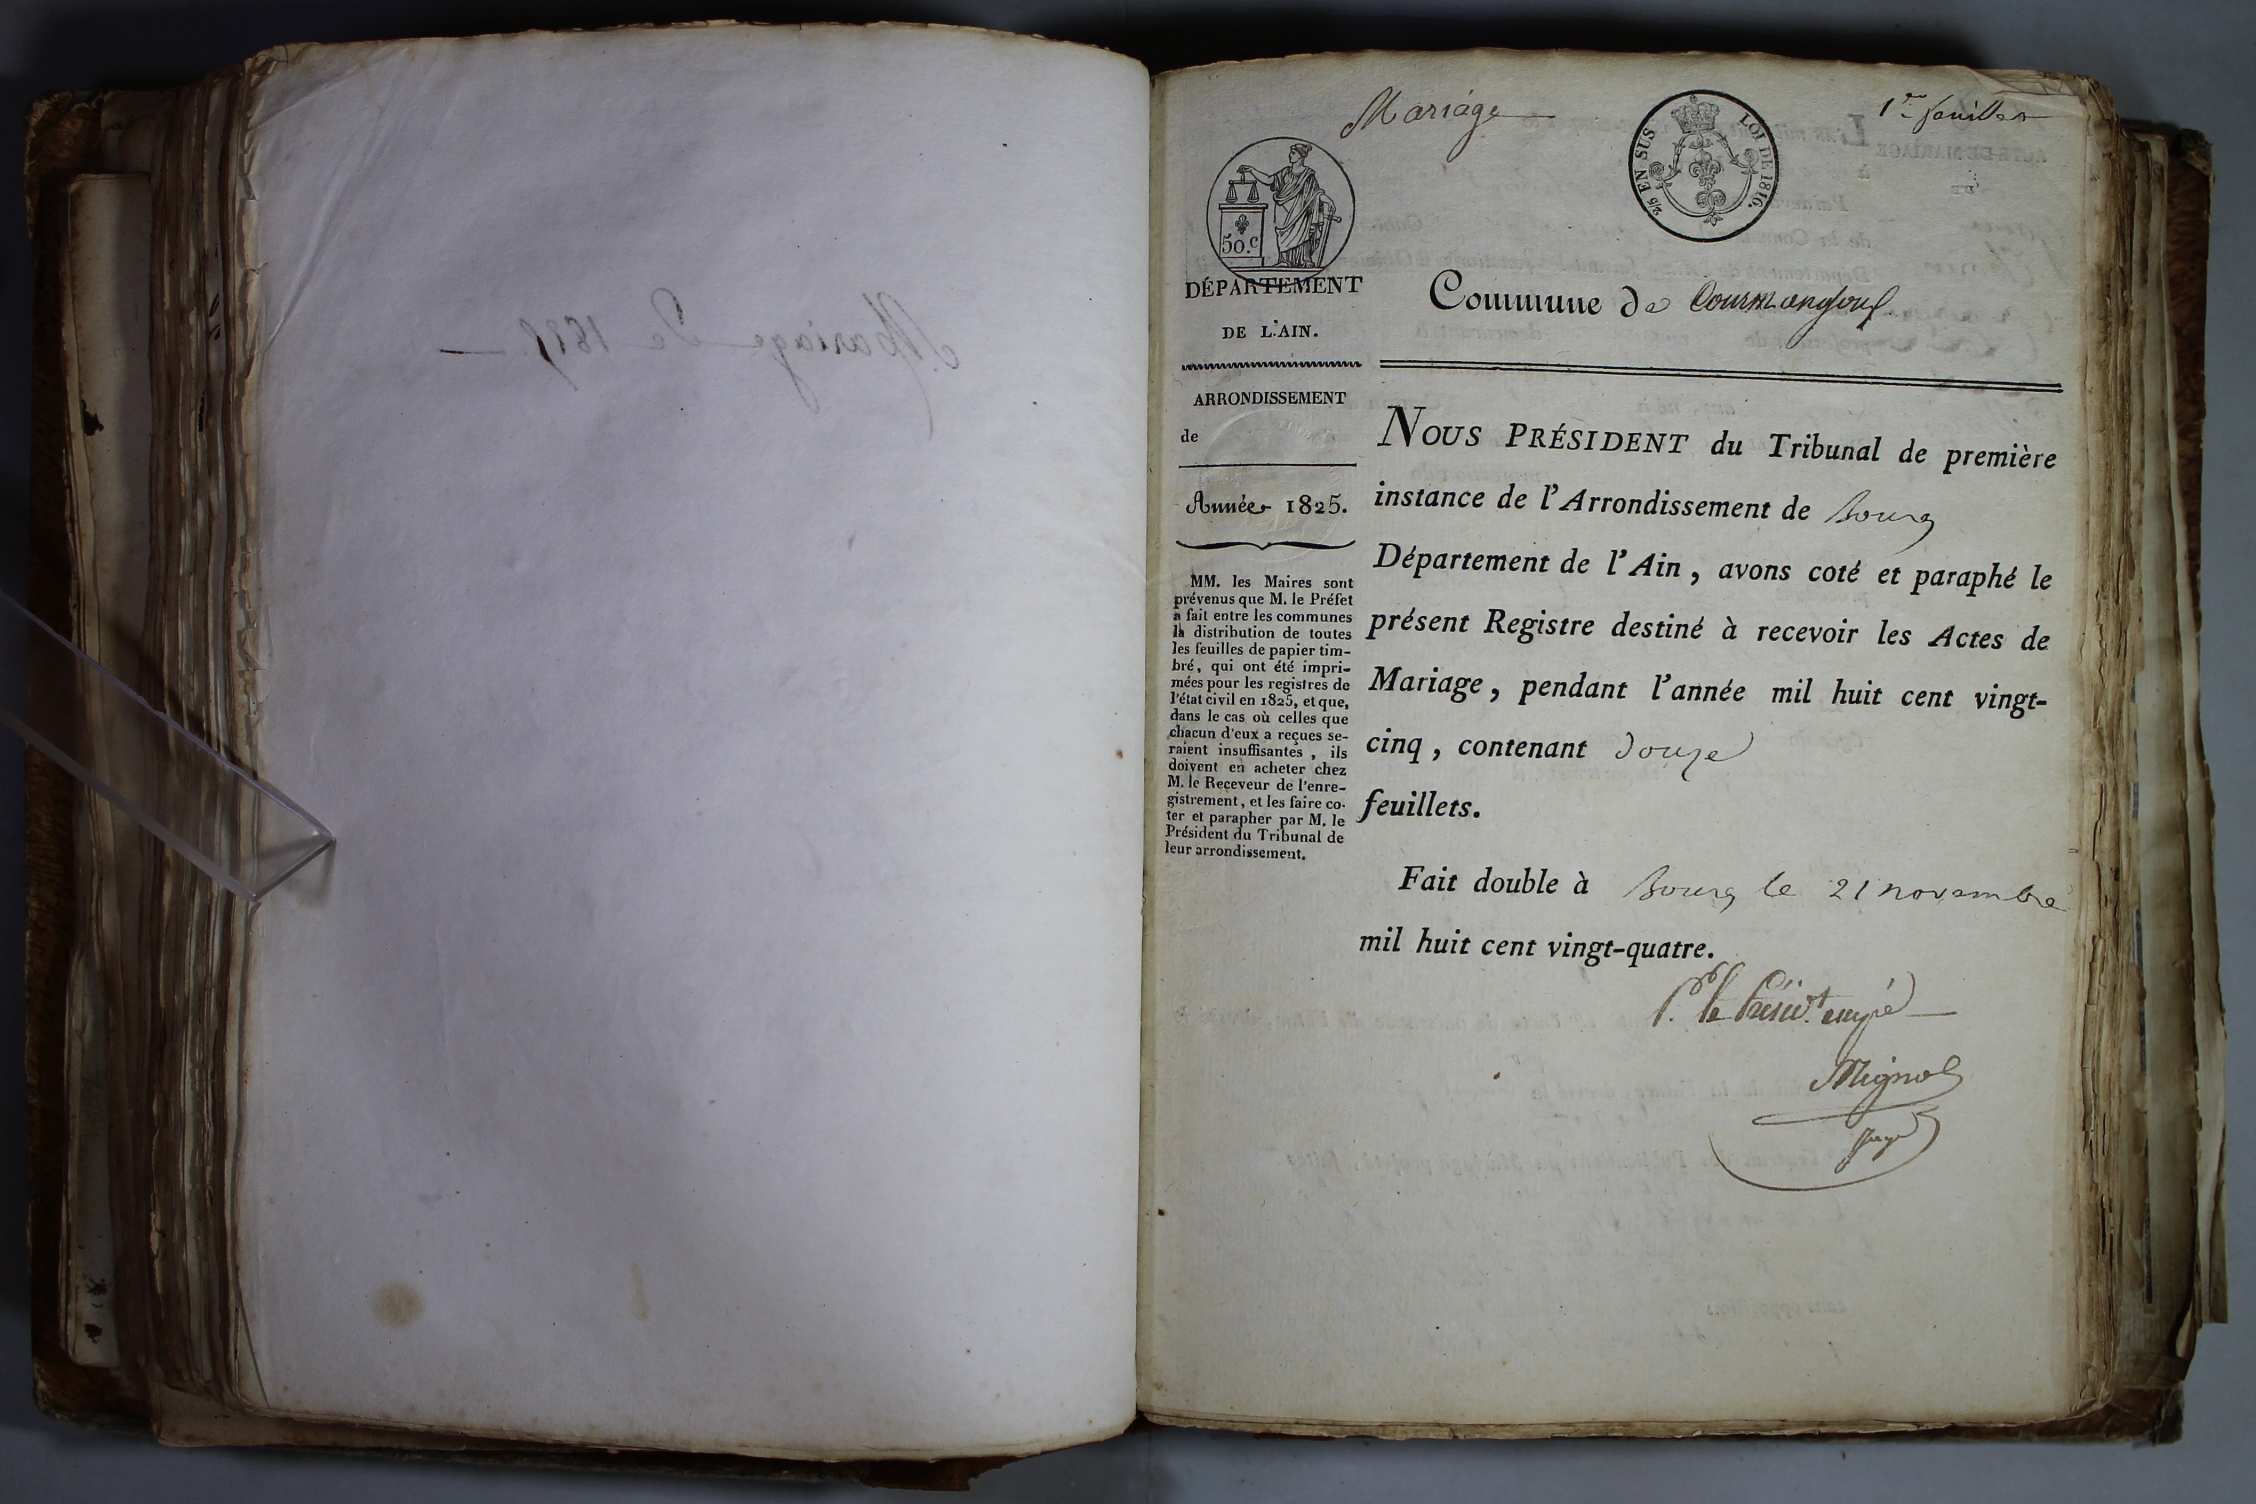 Mariage de 1825
Mariage
1er feuillet
2/5 EN SUS LOI DE 1816.
50.c
DÉPARTEMENT
DE L'AIN.
Commune de Courmangoux
ARRONDISSEMENT
de
Année 1825.
MM. les Maires sont
prévenus que M. le Préfet
a fait entre les communes
la distribution de toutes
les feuilles de papier tim-
bré, qui ont été impri-
mées pour les registres de
l'état civil en 1825, et que,
dans le cas où celles que
chacun d'eux a reçues se-
raient insuffisantes, ils
doivent en acheter chez
M. le Receveur de l'enre-
gistrement, et les faire co-
ter et parapher par M. le
Président du Tribunal de
leur arrondissement.
NOUS PRÉSIDENT du Tribunal de première
instance de l'Arrondissement de Bourg
Département de l'Ain, avons coté et paraphé le
présent Registre destiné à recevoir les Actes de
Mariage, pendant l'année mil huit cent vingt-
cinq, contenant douze
feuillets.
Fait double à Bourg le 21 novembre
mil huit cent vingt-quatre.
P. le Présid.t
Mignot
Juge